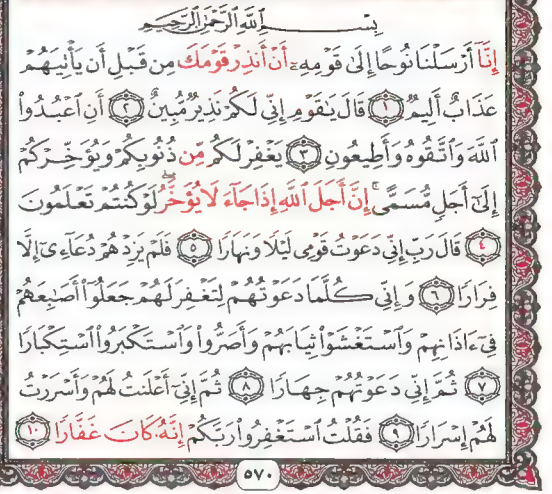 بِسْمِ اللَّهِ الرَّحْمَٰنِ الرَّحِيمِ
إِنَّا أَرْسَلْنَا نُوحًا إِلَىٰ قَوْمِهِۦٓ أَنْ أَنذِرْ قَوْمَكَ مِن قَبْلِ أَن يَأْتِيَهُمْ
عَذَابٌ أَلِيمٌ ١ قَالَ يَٰقَوْمِ إِنِّي لَكُمْ نَذِيرٌ مُّبِينٌ ٢ أَنِ ٱعْبُدُوا۟
ٱللَّهَ وَٱتَّقُوهُ وَأَطِيعُونِ ٣ يَغْفِرْ لَكُم مِّن ذُنُوبِكُمْ وَيُؤَخِّرْكُمْ
إِلَىٰٓ أَجَلٍ مُّسَمًّى ۚ إِنَّ أَجَلَ ٱللَّهِ إِذَا جَآءَ لَا يُؤَخَّرُ ۖ لَوْ كُنتُمْ تَعْلَمُونَ
٤ قَالَ رَبِّ إِنِّي دَعَوْتُ قَوْمِي لَيْلًا وَنَهَارًا ٥ فَلَمْ يَزِدْهُمْ دُعَآءِىٓ إِلَّا
فِرَارًا ٦ وَإِنِّي كُلَّمَا دَعَوْتُهُمْ لِتَغْفِرَ لَهُمْ جَعَلُوٓا۟ أَصَٰبِعَهُمْ
فِىٓ ءَاذَانِهِمْ وَٱسْتَغْشَوْا۟ ثِيَابَهُمْ وَأَصَرُّوا۟ وَٱسْتَكْبَرُوا۟ ٱسْتِكْبَارًا
٧ ثُمَّ إِنِّي دَعَوْتُهُمْ جِهَارًا ٨ ثُمَّ إِنِّىٓ أَعْلَنتُ لَهُمْ وَأَسْرَرْتُ
لَهُمْ إِسْرَارًا ٩ فَقُلْتُ ٱسْتَغْفِرُوا۟ رَبَّكُمْ إِنَّهُۥ كَانَ غَفَّارًا ١٠
٥٧٠